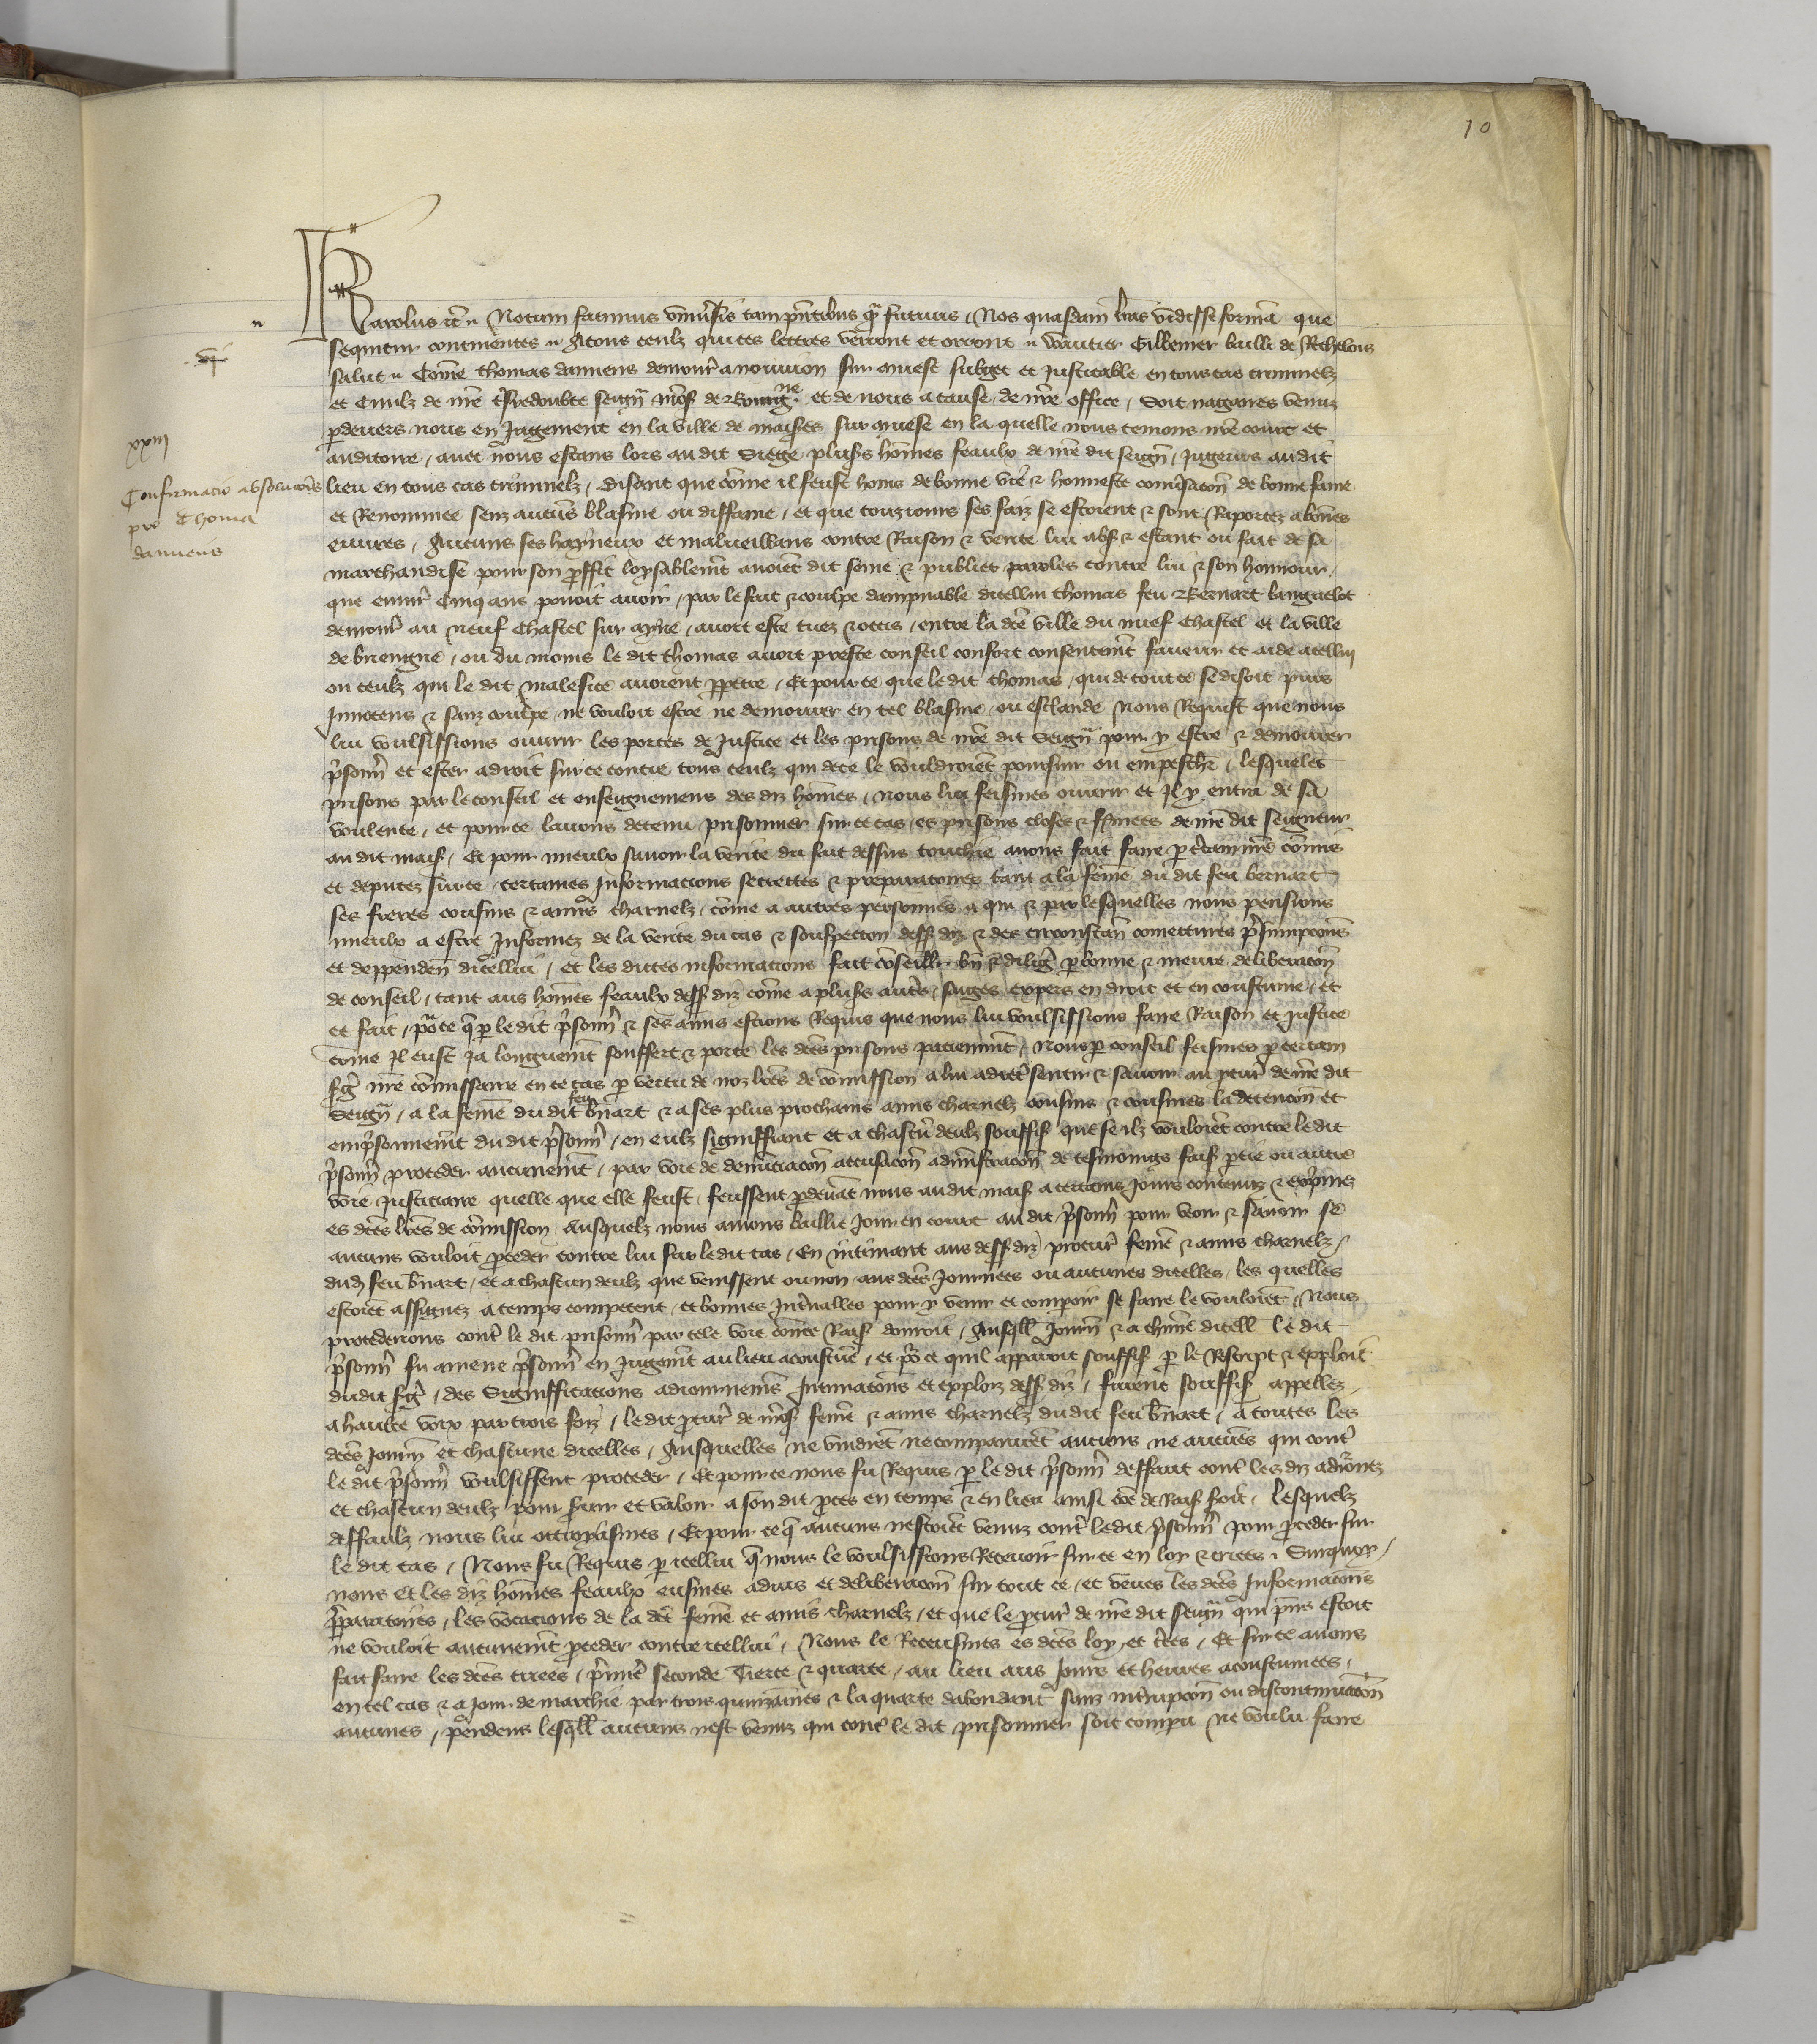 10
Karolus etc. Notum facimus universis tam presentibus quam futuris, Nos quasdam lr̃as vidisse formã que
sequitur continentes. A tous ceulz qui ces lettres verront et orront, Wautier Gillemer bailli de Rethelois
salut. Cõme Thomas daniens demour̃ a nouvion sur muese subget et justicable en tous cas criminelz
et civilz de nr̃e tr̃sredoubte seign̄ mõs̃ de Bourgne et de nous a cause de nr̃e office, soit nagaires venuz
p̱devers nous en jugement en la ville de maises sur muese en la quelle nous tenons nr̃e court et
auditoire, avec nous estans lors au dit siege plus̃s hõmes feaulx de nr̃e dit seign̄, jugeurs au dit
xxiii
Confirmacio absolucõis
pro Thoma
daniens
lieu en tous cas criminelz, disant que cõme il feust homs de bonne vie & honneste conv̾sacõn de bonne fame
et Renommee senz aucũs blasme ou diffame, et que touzjours ses faiz se estoient & sont Raportez a bõnes
euvres, Aucuns ses hayneux et malveillans contre Raison & verite lui abs̃ & estant ou fait de sa
marchandise pour son p̱ffit loysablem̃t avoiẽt dit seme & publiet paroles contre lui & son honnour,
que envir̃ cinq ans povoit avoir, par le fait & coulpe dampnable dicellui thomas feu Bernart languelot
demour̃ au neuf chastel sur ayne, avoit este tuez & occis, entre la dc̃e ville du nuef chastel et la ville
de briengne, ou du moins le dit thomas avoit preste conseil confort consentem̃t faveur et aide a cellui
ou ceulz qui le dit malefice avoient p̱petre, Et pour ce que le dit thomas, qui de tout ce se disoit purs
Innocens & sanz coulpe ne vouloit estre ne demourer en tel blasme ou esclande Nous Requist que nous
lui voulsissions ouvrir les portes de justice et les prisons de nr̃e dit seign̄ pour y estre & demourer
p̾sonñ et ester a droit sur ce contre tous ceulz qui de ce le vouldroiẽt poursuir ou empeschr̃, lesqueles
prisons par le conseil et enseignemens des diz hõmes, nous lui feismes ouvrir et Il y entra de sa
voulente, et pour ce lavons detenu prisonnier sur ce cas es prisons closes & fr̃mees de nr̃e dit seigneur
au dit mais̃, Et pour mieulx savoir la verite du fait dessus touchie avons fait faire p̱ c̾tain nr̃e cõmis
et deputez sur ce, certaines Informacions secrettes & preparatoires tant a la fem̃e du dit feu bernart
ses freres cousins & amis charnelz, cõme a autres personnes a qui & par lesquelles nous pensions
mieulx a estre Informez de la verite du cas & souspecon dess̃ diz & des circonstañ conjectures p̾sumpcõns
et deppendeñ dicellui, et les dictes informacions fait cõseillr̃ bñ & dilig̃ p̱ bonne & meure deliberacõn
de conseil, tant aus hõmes feaulx dess̃ diz cõme a plus̃s autr̃s, saiges expers en droit et en coustume, et
et fait, pour ce q̃ p̱ le dit p̾sonñ & ses amis estions Requis que nous lui voulsissions faire Raison et justice
cõme Il eust ja longuem̃t souffert & porte les dc̃es prisons paciemm̃t, Nous p̱ conseil feismes p̱ certain
s̃g̃ nr̃e cõmissaire en ce cas p̱ vertu de noz lr̃es de cõmission a lui adrec̃ sentir & savoir au p̱cur̃ de nr̃e dit
seign̄, a la fem̃e du dit feu b̃nart & a ses plus prochains amis charnelz cousins & cousines la detencõn et
emp̾sonnem̃t du dit p̾sonñ, en eulz signiffiant et a chascũ deulz souffis̃ que se ilz vouloiẽt contre le dit
p̾sonñ proceder aucunem̃t, par voie de denũciacõn accusacõn adm̃istracõn de tesmoings fais̃ p̱tie ou autre
voie justiciaire quelle que elle feust, feussent p̱devãt nous au dit mais̃ a certains jours contenuz & exp̾mez
es dc̃es lr̃es de cõmission Ausquelz nous avions baillie jour en court au dit p̾sonñ pour veoir & savoir se
aucuns vouloit p̱ceder contre lui sur le dit cas, En intimant aus dess̃ diz procur̃ fem̃e & amis charnelz,
dud̃ feu b̃nart, et a chascun deulz que venissent ou non aus dc̃es journees ou aucunes dicelles, les quelles
estoiẽt assignez a temps competent, et bonnes Int̾valles pour y venir et comp̱oir se faire le vouloiẽt, Nous
procederions cont̾ le dit prisonñ par tele voie cõme Rais̃ donroit, Ausq̃ll̃ journ̄ & a chũne dicell̃ le dit
p̾sonñ fu amene p̾sonñ en jugem̃t au lieu acoustũe, et pour ce quil apparoit souffis̃ p̱ le Rescript & exploit
dudit s̃g̃, des signifficacions adjournemẽs Intimacõns et exploiz dess̃ diz, furent souffis̃ appellez
a haulte voix par trois foiz, le dit p̱cur̃ de mõs̃ fem̃e & amis charnelz du dit feu b̃nart, a toutes les
dc̃es journ̄ et chascune dicelles, Ausquelles ne vindrẽt ne comparurẽt aucuns ne aucũes qui cont̾
le dit p̾sonñ voulsissent proceder, Et pour ce nous fu Requis p̱ le dit p̾sonñ deffaut cont̾ les diz adjõnez
et chascun deulz pour s̾vir et valoir a son dit p̱ces en temps & en lieu ainsi cõe de Rais̃ seroit, lesquelz
deffaulz nous lui octroyasmes, Et pour ce q̃ aucuns nestoiẽt venuz cont̾ le dit p̾sonñ pour p̱ceder sur
le dit cas, Nous fu Requis p̱ icellui q̃ nous le voulsissions Recevoir sur ce en loy & criees, Surquoy,
nous et les diz hõmes feaulx eusmes advis et deliberacõn sur tout ce, et veues les dc̃es Informacõns
p̾paratoires, les vocacions de la dc̃e fem̃e et amis charnelz, et que le p̱cur̃ de nr̃e dit seign̄ qui p̃ns estoit
ne vouloit aucunem̃t p̱ceder contre icellui, Nous le Receusmes es dc̃es loy et c̾ees, Et sur ce avons
fait faire les dc̃es criees, p̾miẽ seconde tierce & quarte, au lieu aus jours et heures acoustumees,
en tel cas & a jour de marchie par trois quinzaines & la quarte dabondant sanz int̾rupcõn ou discontinuacõn
aucunes, pendens lesq̃ll̃ aucuns nest venuz qui cont̾ le dit prisonnier soit compu ne voulu faire